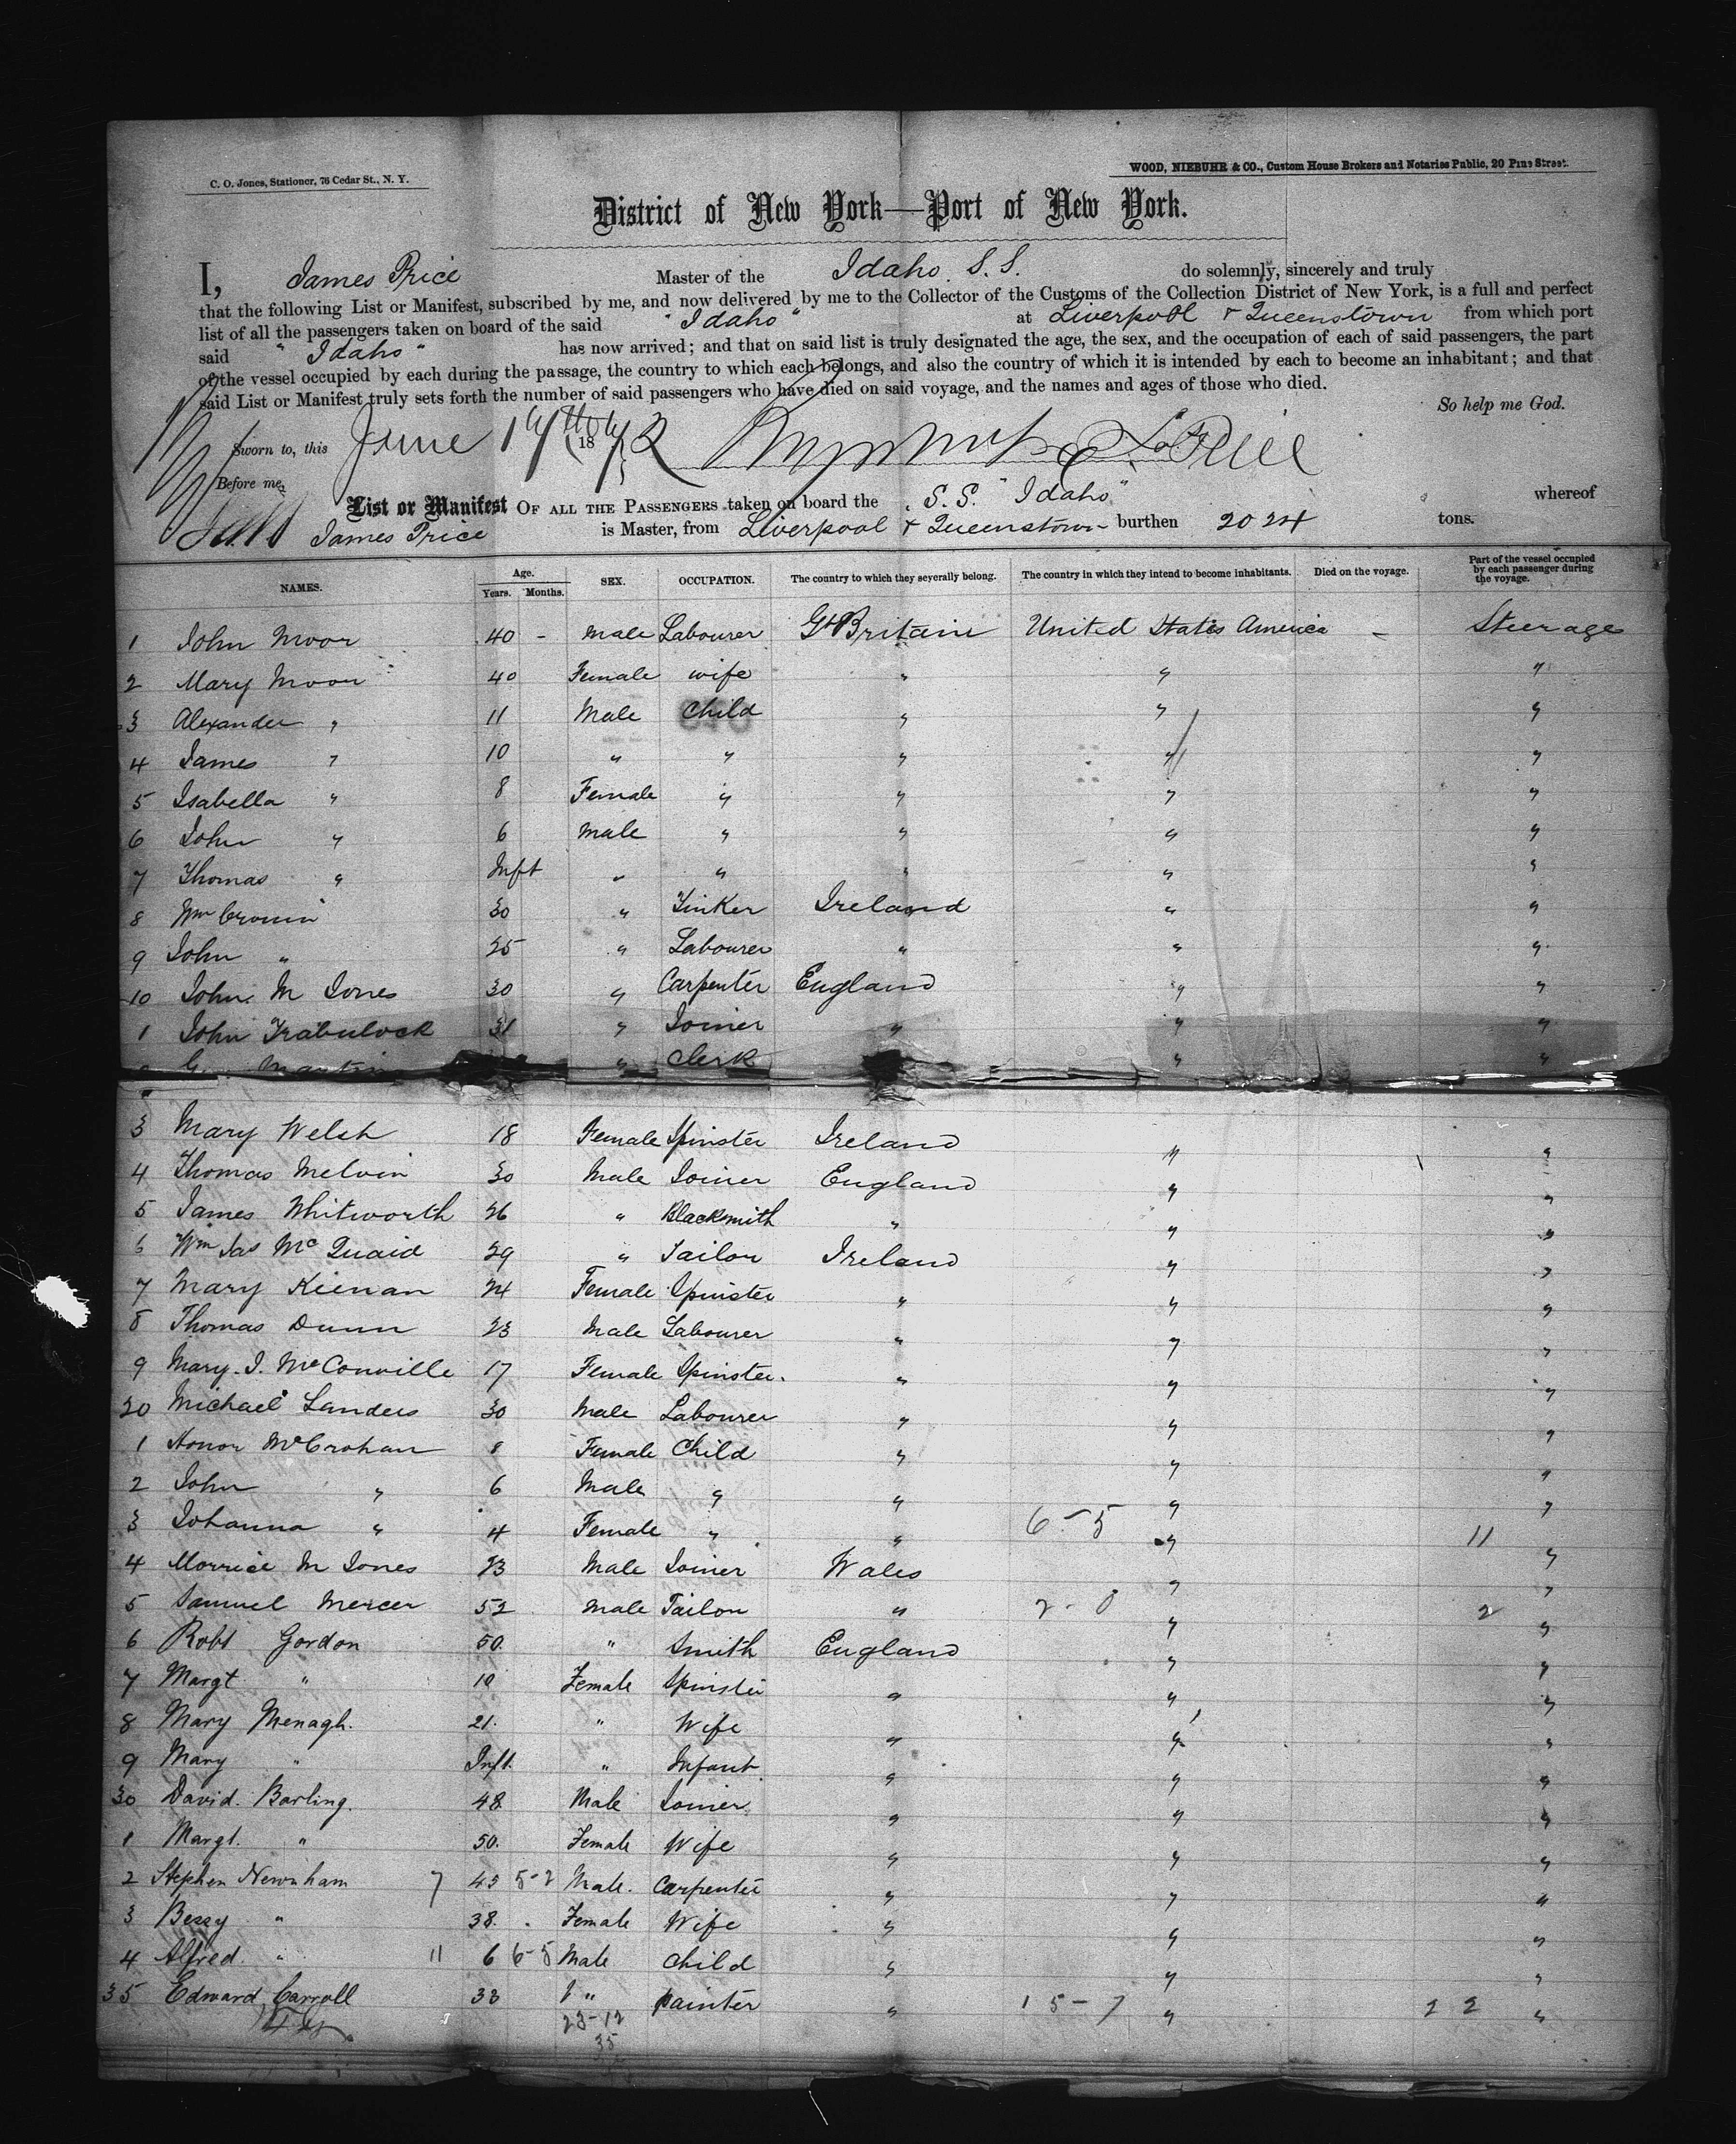 C. O. Jones, Stationer, 76 Cedar St., N. Y.
WOOD, NIEBUHR & CO., Custom House Brokers and Notaries Public, 20 Pine Street.
District of New York—Port of New York.
I, James Price Master of the Idaho S.S. do solemnly, sincerely and truly
that the following List or Manifest, subscribed by me, and now delivered by me to the Collector of the Customs of the Collection District of New York, is a full and perfect
list of all the passengers taken on board of the said "Idaho" at Liverpool & Queenstown from which port
said "Idaho" has now arrived; and that on said list is truly designated the age, the sex, and the occupation of each of said passengers, the part
of the vessel occupied by each during the passage, the country to which each belongs, and also the country of which it is intended by each to become an inhabitant; and that
said List or Manifest truly sets forth the number of said passengers who have died on said voyage, and the names and ages of those who died.
So help me God.
Sworn to, this June 18 Price
Before me,
List or Manifest OF ALL THE PASSENGERS taken on board the S.S. "Idaho" whereof
James Price is Master, from Liverpool & Queenstown burthen 2024 tons.
NAMES. Age. Years. Months. SEX. OCCUPATION. The country to which they severally belong. The country in which they intend to become inhabitants. Died on the voyage. Part of the vessel occupied by each passenger during the voyage.
1 John Moor 40 - Male Labourer Gt Britain United States America - Steerage
2 Mary Moor 40 Female wife " " "
3 Alexander " 11 Male Child " " "
4 James " 10 " " " " "
5 Isabella " 8 Female " " " "
6 John " 6 Male " " " "
7 Thomas " Inft " " " " "
8 Wm Cronin 30 " Tinker Ireland " "
9 John " 25 " Labourer " " "
10 John M Jones 30 " Carpenter England " "
1 John Trabulock 31 " Joiner " " "
Martin " Clerk " "
3 Mary Welsh 18 Female Spinster Ireland " "
4 Thomas Melvin 30 Male Joiner England " "
5 James Whitworth 26 " Blacksmith " " "
6 Wm Jas McQuaid 29 " Tailor Ireland " "
7 Mary Kienan 24 Female Spinster " " "
8 Thomas Dunn 23 Male Labourer " " "
9 Mary J. McConville 17 Female Spinster " " "
20 Michael Landers 30 Male Labourer " " "
1 Honor McCrohan 8 Female Child " " "
2 John " 6 Male " " " "
3 Johanna " 4 Female " " 6-5 " 11 "
4 Morrice M Jones 23 Male Joiner Wales " "
5 Samuel Mercer 52 Male Tailor " 2-0 " 2 "
6 Robt Gordon 50 " Smith England " "
7 Margt " 10 Female Spinster " " "
8 Mary Menagh. 21. " Wife " " "
9 Mary " Inft. " Infant " " "
30 David Barling. 48 Male Joiner " " "
1 Margt. " 50. Female Wife " " "
2 Stephen Newnham 7 45 5-2 Male. Carpenter " " "
3 Bessy " 38. Female Wife " " "
4 Alfred. " 11 6 6-5 Male Child " " "
35 Edward Carroll 33 " painter " 15-7 " 22 "
23-12
35